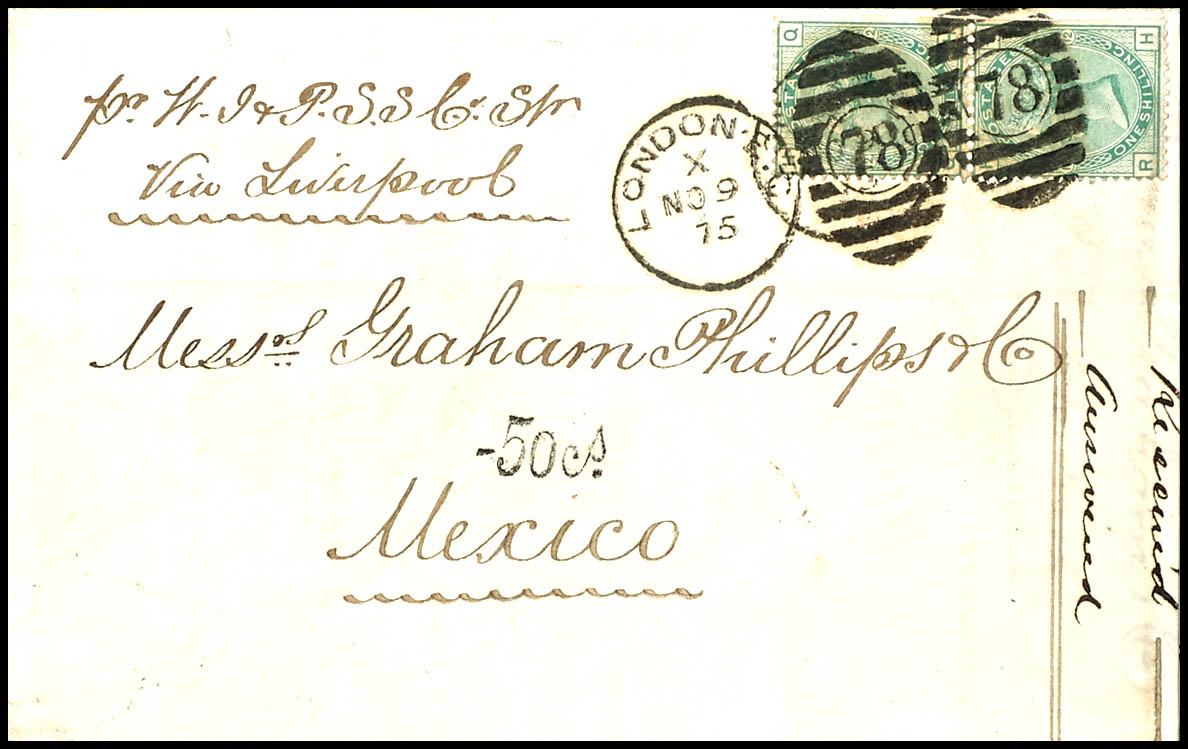 pr W. I & P. S. S Co. Str
Via Liverpool
LONDON·E.C
X
NO 9
75
78
78
Q
H
H
R
2
2
POSTAGE
ONE SHILLING
Messrs Graham Phillips & Co
-50 cs.
Mexico
Received
Answered